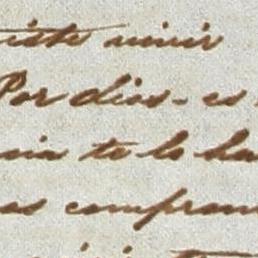 iste unir
Por dios - es
nia te lo ha
as compren